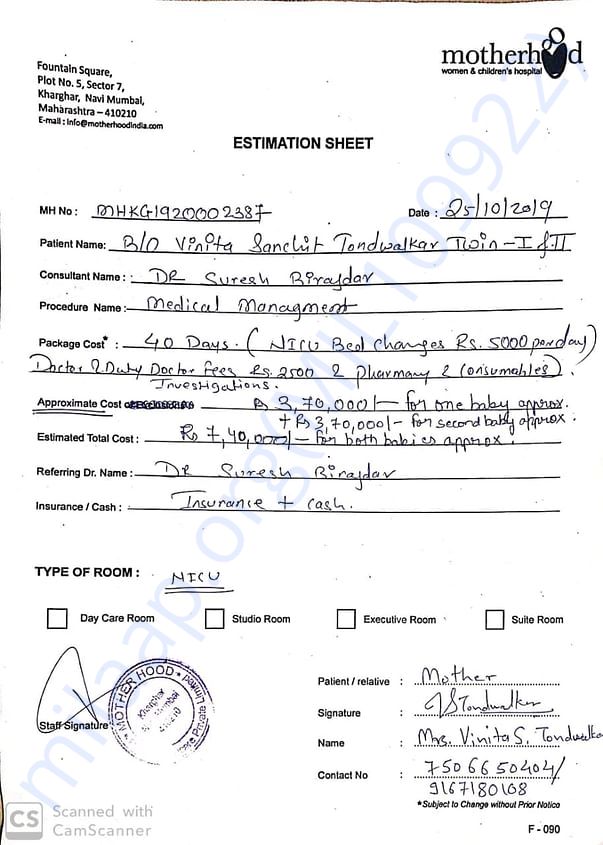 motherhood
women & children's hospital
Fountain Square,
Plot No. 5, Sector 7,
Kharghar, Navi Mumbai,
Maharashtra – 410210
E-mail : Info@motherhoodindia.com
ESTIMATION SHEET
MH No : MHKG1920002387
Date : 25/10/2019
Patient Name: B/O Vinita Sanchit Tondwalkar Twin - I & II
Consultant Name : DR Suresh Birajdar
Procedure Name : Medical Managment
Package Cost* : 40 Days. ( NICU Bed Charges Rs. 5000 per day)
Doctor & Duty Doctor Fees Rs. 2500 & Pharmacy & Consumables) .
Investigations.
Approximate Cost Rs 3,70,000/- for one baby approx.
+ Rs 3,70,000/- for second baby approx .
Estimated Total Cost : Rs 7,40,000/- for both babies approx .
Referring Dr. Name : DR Suresh Birajdar
Insurance / Cash : Insurance + Cash.
TYPE OF ROOM : NICU
Day Care Room
Studio Room
Executive Room
Suite Room
MOTHER HOOD
Kharghar
Mumbai
Private Limited
Staff Signature
Patient / relative : Mother
Signature : Tondwalker
Name : Mrs. Vinita S. Tondwalka
Contact No : 7506650404/
9167180168
*Subject to Change without Prior Notice
F - 090
CS Scanned with
CamScanner